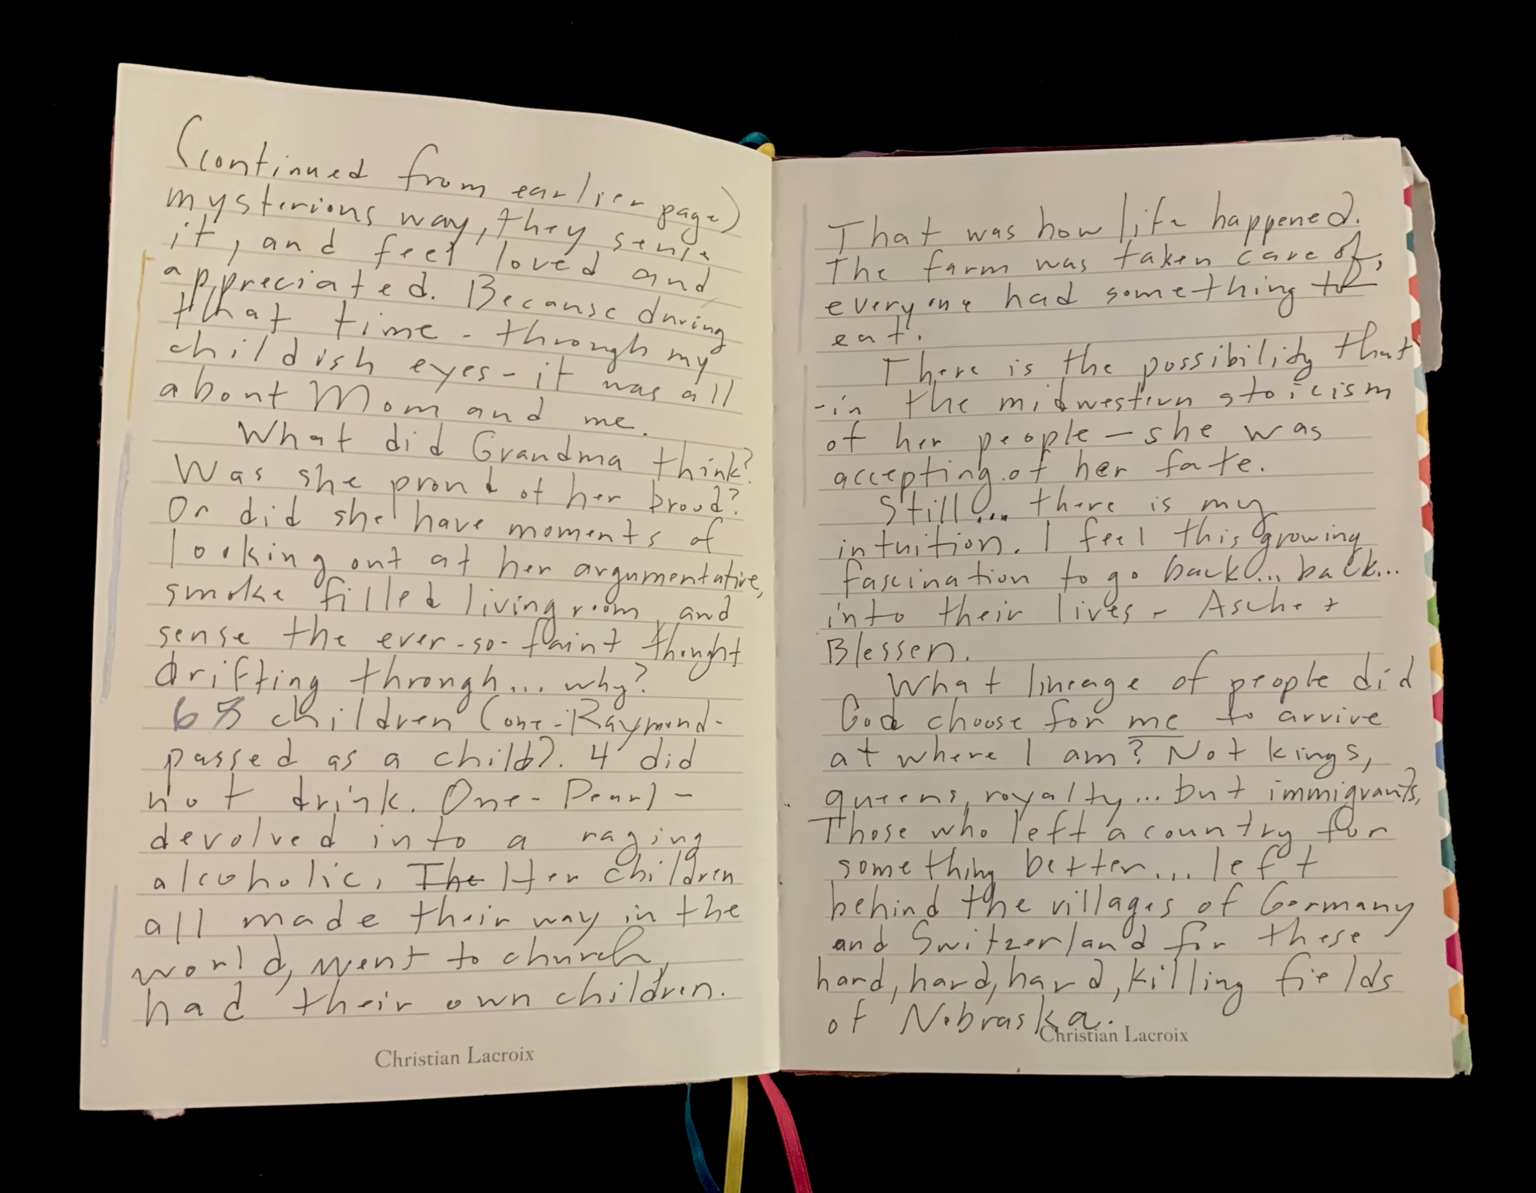 (continued from earlier page)
mysterious way, they sense
it, and feel loved and
appreciated. Because during
that time - through my
childish eyes - it was all
about Mom and me.
What did Grandma think?
Was she proud of her brood?
Or did she have moments of
looking out at her argumentative,
smoke filled living room, and
sense the ever-so-faint thought
drifting through... why?
6 children (one - Raymond -
passed as a child). 4 did
not drink. One - Pearl -
devolved into a raging
alcoholic. The Her children
all made their way in the
world, went to church,
had their own children.
Christian Lacroix
That was how life happened.
The farm was taken care of,
everyone had something to
eat.
There is the possibility that
- in the midwestern stoicism
of her people - she was
accepting of her fate.
Still... there is my
intuition. I feel this growing
fascination to go back... back...
into their lives - Asche +
Blessen.
What lineage of people did
God choose for me to arrive
at where I am? Not kings,
queens, royalty... but immigrants,
Those who left a country for
something better... left
behind the villages of Germany
and Switzerland for these
hard, hard, hard, killing fields
of Nebraska.
Christian Lacroix